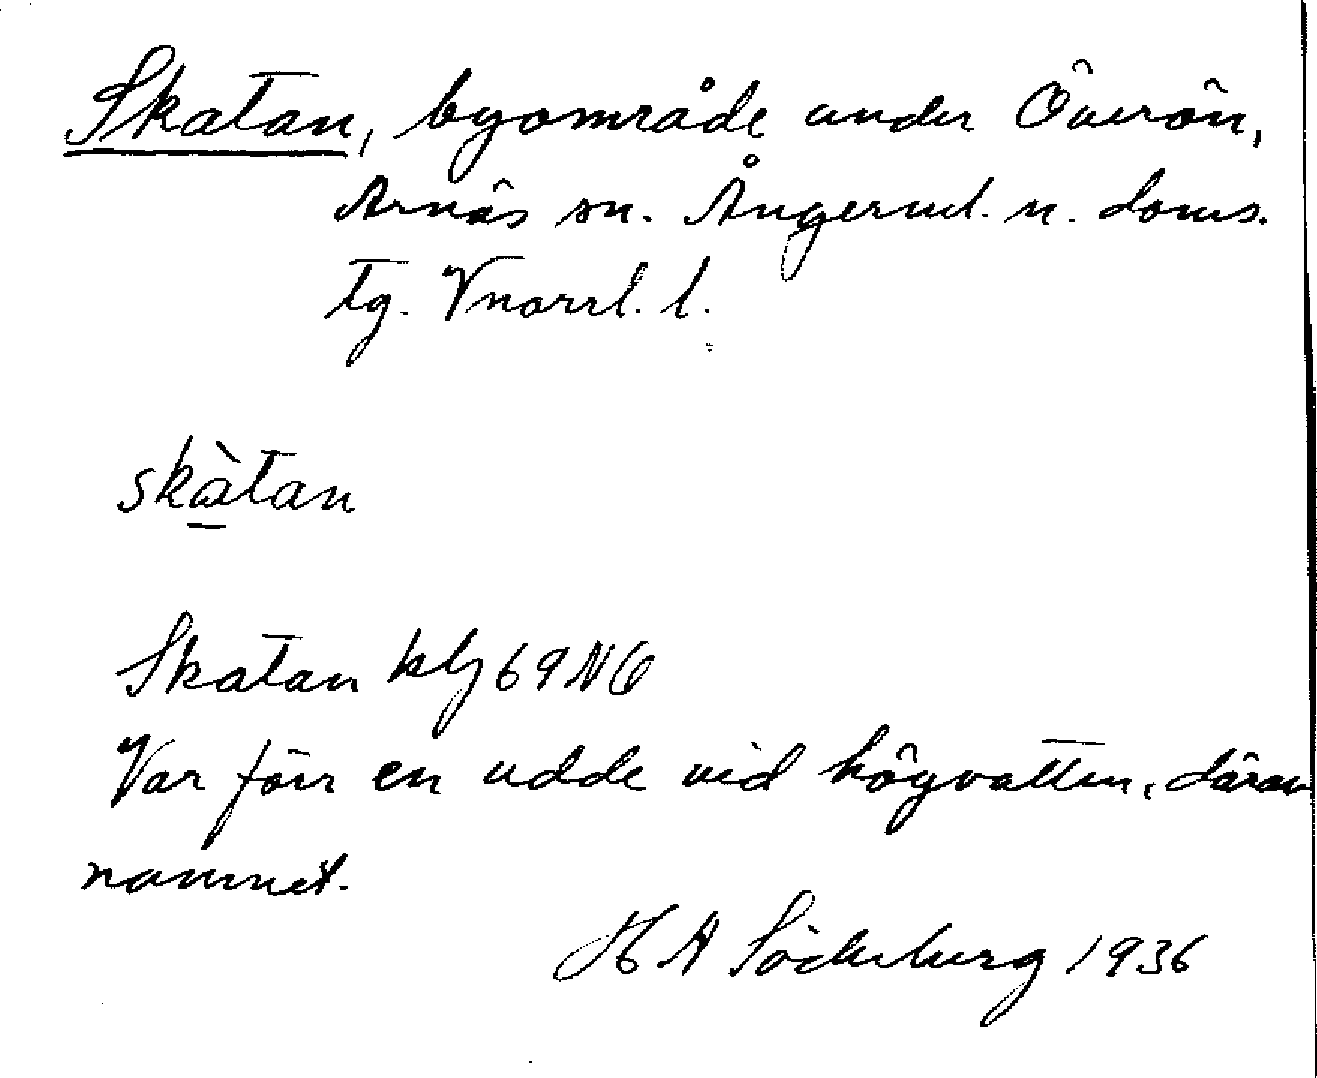 Skatan, byområde under Överön,
Arnäs sn. Ångerml. n. doms.
tg. Vnorrl. l.
skàtan
Skatan klj 69 NO
Var förr en udde vid högvatten, därav
namnet.
H A Söderberg 1936